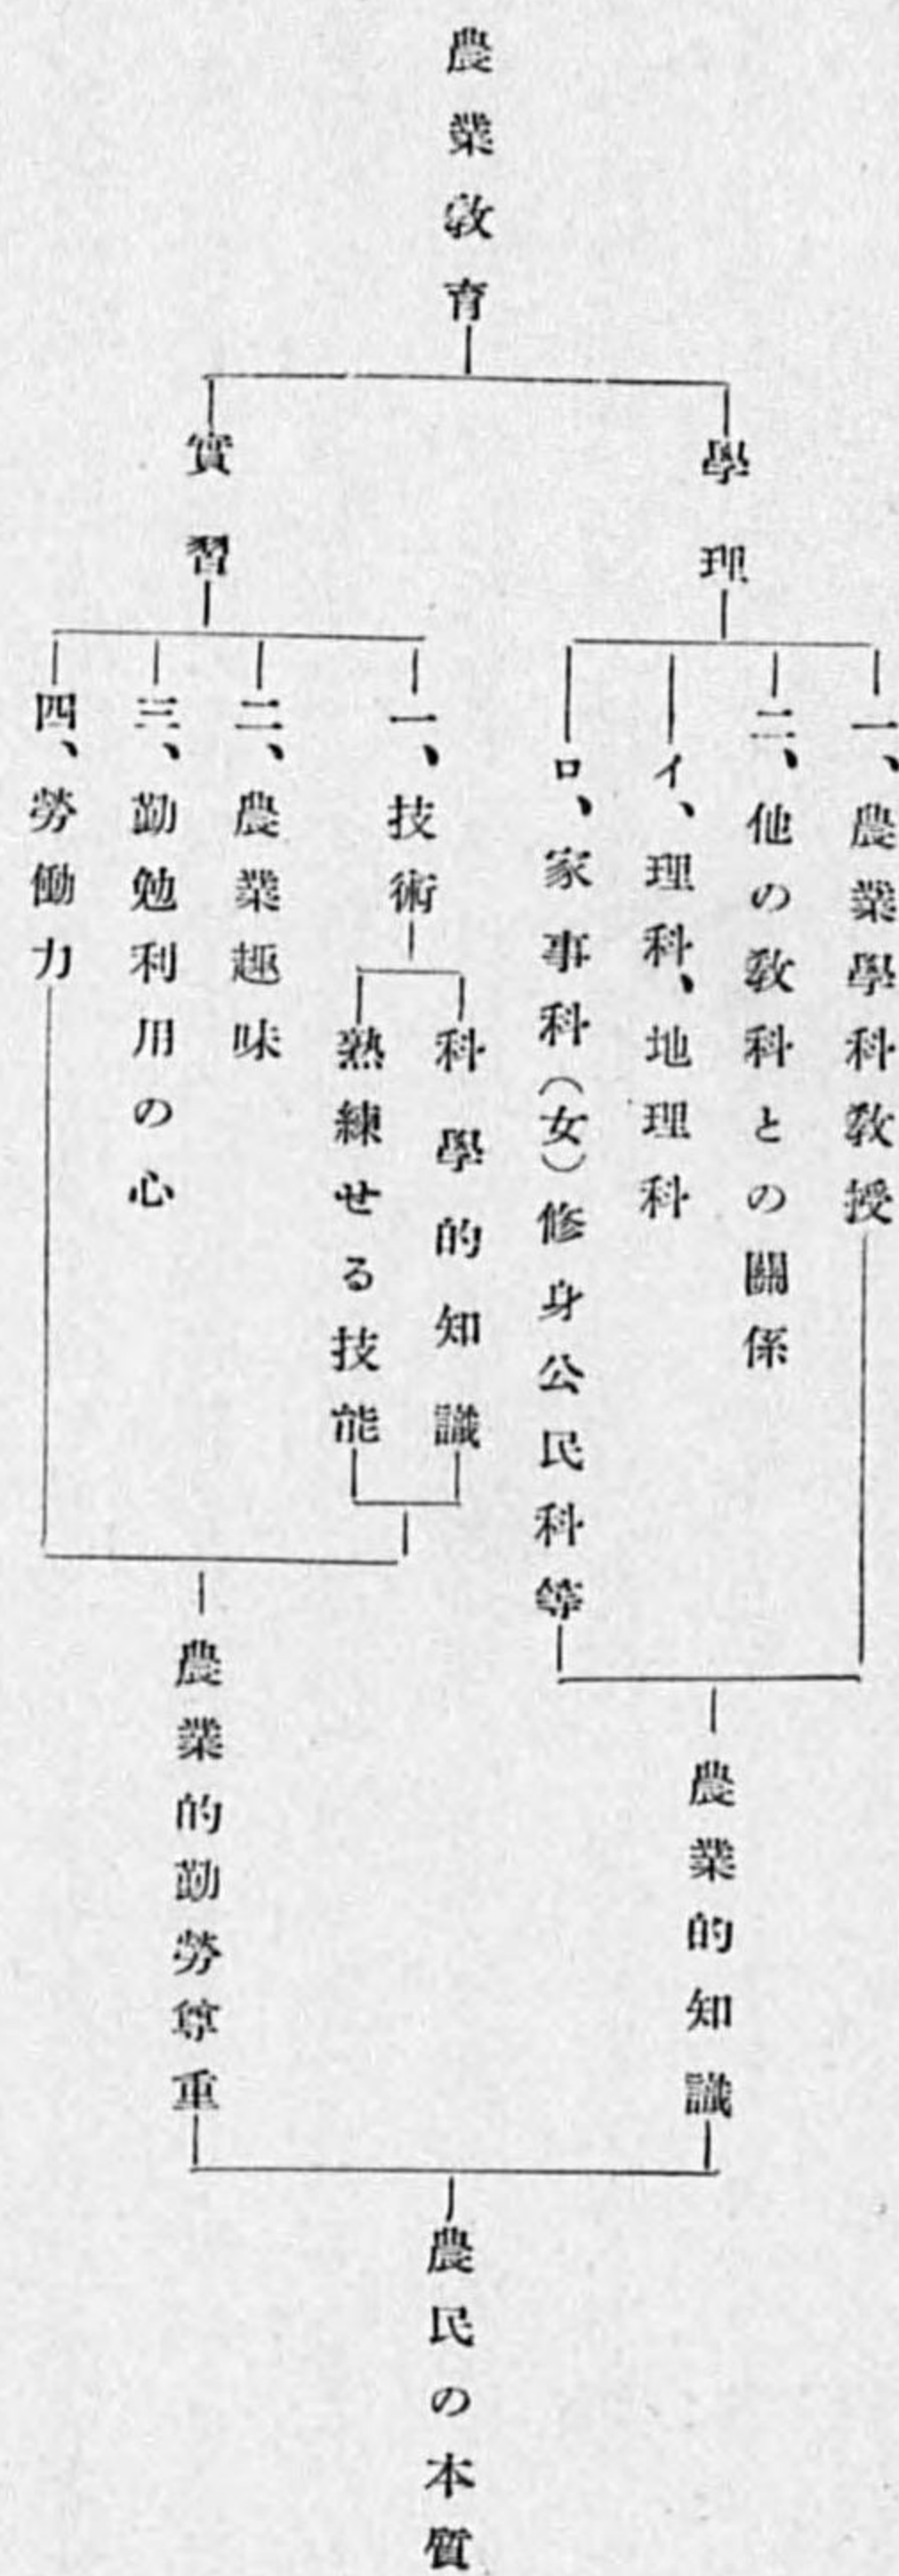 農業敎育
學理
一、農業學科敎授
二、他の敎科との關係
イ、理科、地理科
ロ、家事科(女)修身公民科等
農業的知識
實習
一、技術
科學的知識
熟練せる技能
二、農業趣味
三、勤勉利用の心
四、勞働力
農業的勤勞尊重
農民の本質